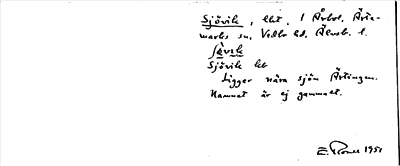 Sjövik, lht, 1 Årbol, Ärte-
marks sn, Vedbo hd, Älvsb. l.
Sjövik lht
Ligger nära sjön Ärtingen.
Namnet är ej gammalt.
1951